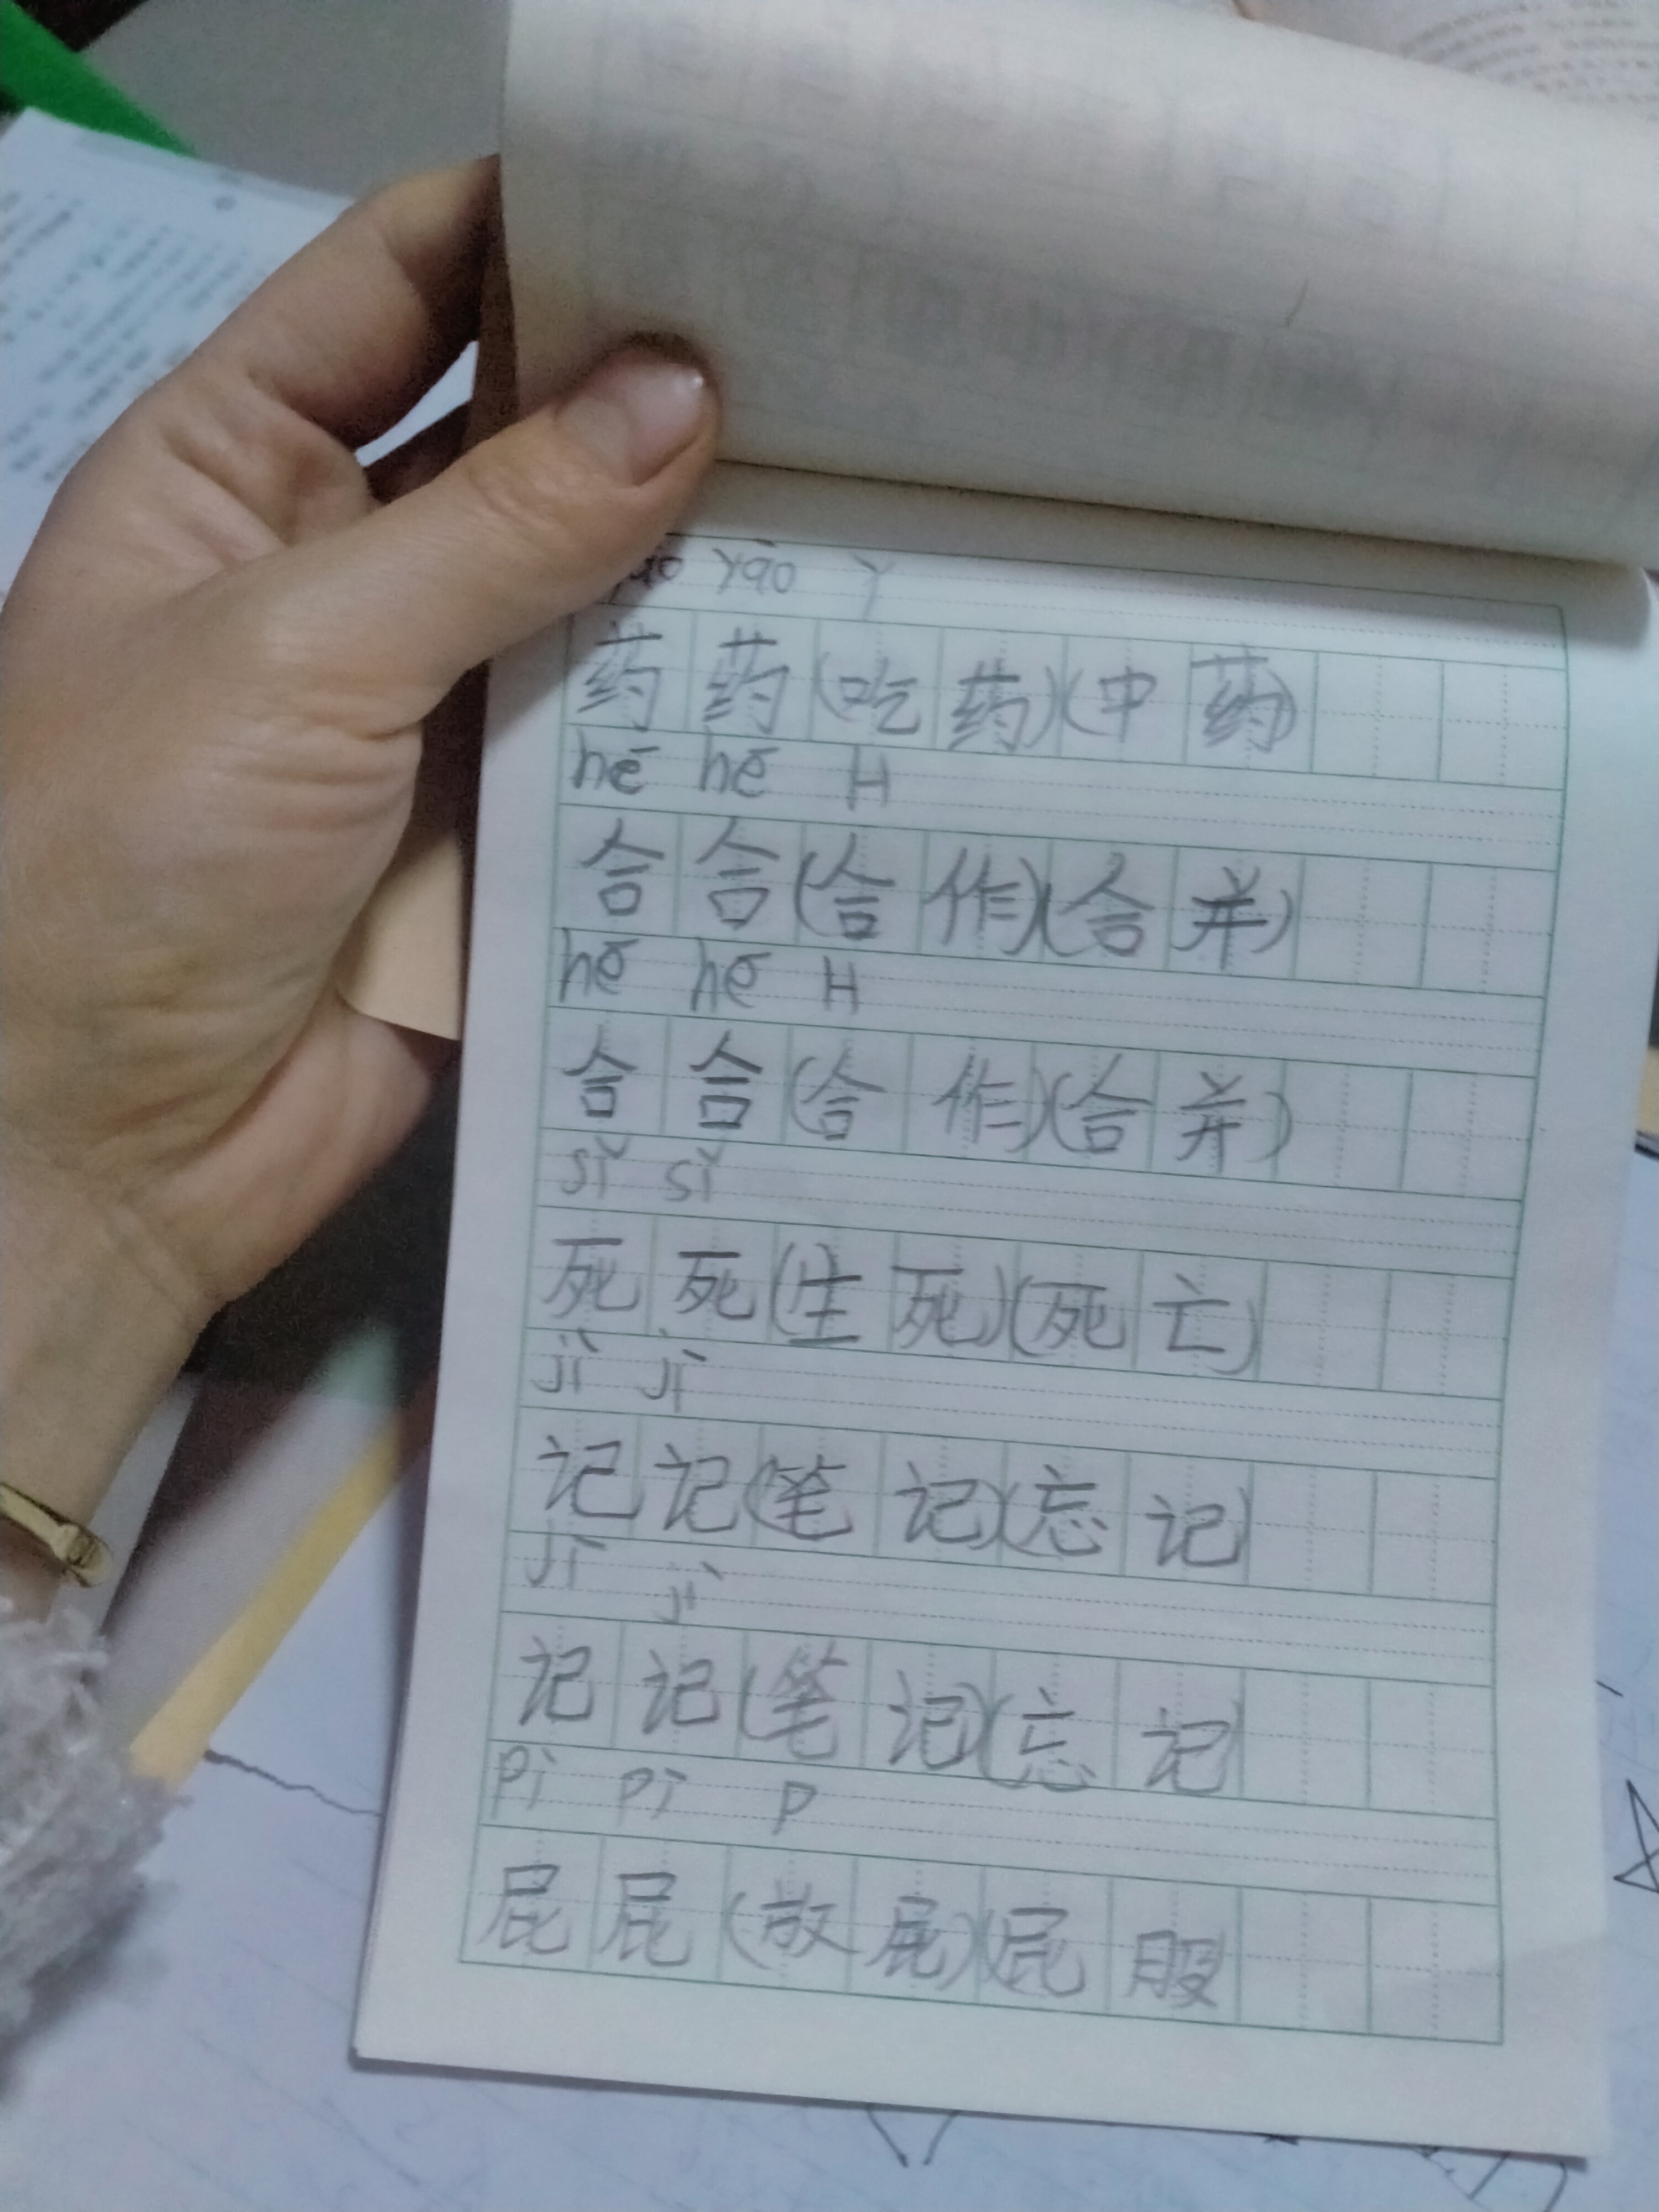 yào Y
药药(吃药)(中药)
hē hē H
合合(合作)(合并)
hē hē H
合合(合作)(合并)
sǐ sǐ
死死(生死)(死亡)
jì jì
记记(笔记)(忘记)
jì jì
记记(笔记)(忘记)
pì pì P
屁屁(放屁)(屁股)